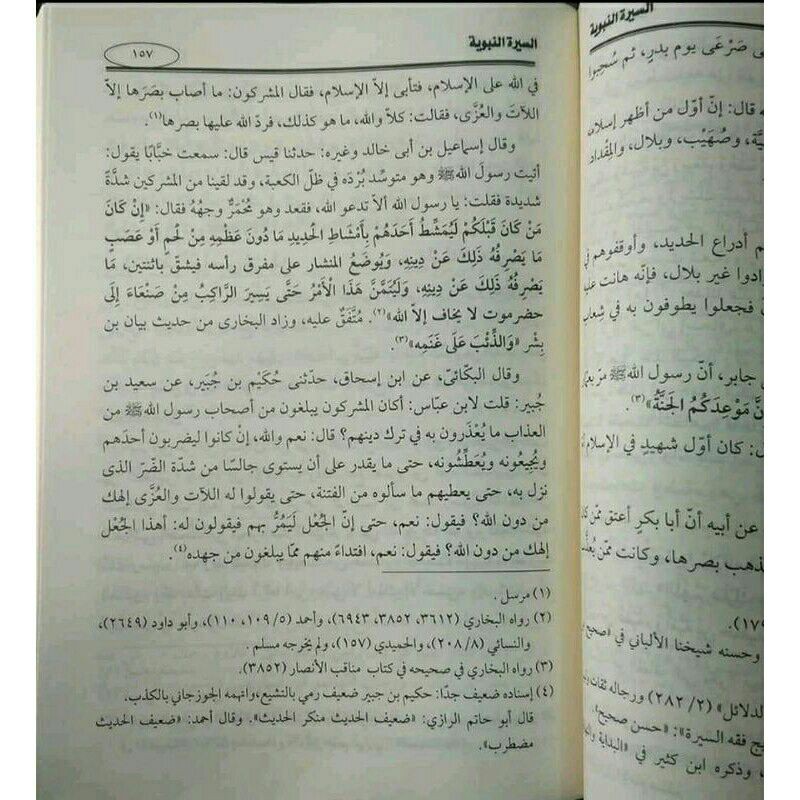 السيرة النبوية
١٥٧
في الله على الإسلام، فتأبى إلاّ الإسلام، فقال المشركون: ما أصاب بصَرَها إلاّ
اللاَتَ والعُزَّى، فقالت: كلاّ والله، ما هو كذلك، فردّ الله عليها بصرها(١).
وقال إسماعيل بن أبى خالد وغيره: حدثنا قيس قال: سمعت خبَّابًا يقول:
أتيت رسولَ اللهﷺ وهو متوسِّد بُرْدَه في ظلّ الكعبة، وقد لقينا من المشركين شدَّة
شديدة فقلت: يا رسول الله ألا تدعو الله، فقعد وهو مُحْمَرٌّ وجهُهُ فقال: «إِنْ كَانَ
مَنْ كَانَ قَبْلَكُمْ لَيُمَشَّطُ أَحَدُهُمْ بِأَمْشَاطِ الْحَدِيدِ مَا دُونَ عَظْمِهِ مِنْ لَحْمٍ أَوْ عَصَبٍ
مَا يَصْرِفُهُ ذَلِكَ عَنْ دِينِهِ، وَيُوضَعُ المنشار على مفرق رأسه فيشقّ باثنتين، مَا
يَصْرِفُهُ ذَلِكَ عَنْ دِينِهِ، وَلَيُتِمَّنَّ هَذَا الْأَمْرُ حَتَّى يَسِيرَ الرَّاكِبُ مِنْ صَنْعَاءَ إِلَى
حضرموت لا يخاف إلاّ الله»(٢). مُتَّفَقٌ عليه، وزاد البخارى من حديث بيان بن
بِشْر «وَالذِّئْبَ عَلَى غَنَمِهِ»(٣).
وقال البكّائىّ، عن ابن إسحاق، حدّثنى حُكَيْم بن جُبَير، عن سعيد بن
جُبير: قلت لابن عبّاس: أكان المشركون يبلغون من أصحاب رسول اللهﷺ من
العذاب ما يُعْذَرون به في ترك دينهم؟ قال: نعم والله، إنْ كانوا ليضربون أحدَهم
ويُجيعُونه ويُعَطِّشُونه، حتى ما يقدر على أن يستوى جالسًا من شدّة الضّرّ الذى
نزل به، حتى يعطيهم ما سألوه من الفتنة، حتى يقولوا له اللاّت والعُزَّى إلهك
من دون الله؟ فيقول: نعم، حتى إنّ الْجُعْل لَيَمُرُّ بهم فيقولون له: أهذا الْجُعْل
إلهك من دون الله؟ فيقول: نعم، افتداءً منهم ممّا يبلغون من جهده(٤).
(١) مرسل .
(٢) رواه البخاري (٣٦١٢، ٣٨٥٢، ٦٩٤٣)، وأحمد (٥/ ١٠٩، ١١٠)، وأبو داود (٢٦٤٩)،
والنسائي (٨/ ٢٠٨)، والحميدي (١٥٧)، ولم يخرجه مسلم .
(٣) رواه البخاري في صحيحه في كتاب مناقب الأنصار (٣٨٥٢).
(٤) إسناده ضعيف جدًا: حكيم بن جبير ضعيف رمي بالتشيع، واتهمه الجوزجاني بالكذب.
قال أبو حاتم الرازي: «ضعيف الحديث منكر الحديث». وقال أحمد: «ضعيف الحديث
مضطرب».
السيرة النبوية
صَرْعَى يوم بدرٍ، ثم سُحِبوا
قال: إنّ أوّل من أظهر إسلامه
وصُهَيْب، وبلال، والمِقْداد
أدراع الحديد، وأوقفوهم في
غير بلال، فإنّه هانت عليه
فجعلوا يطوفون به في شِعاب
جابر، أنّ رسول اللهﷺ مرّ
مَوْعِدَكُمُ الْجَنَّةُ»(٣).
كان أوّل شهيدٍ في الإسلام
عن أبيه أنّ أبا بكرٍ أعتق ممّن
بصرها، وكانت ممّن
وحسنه شيخنا الألباني في
(٢/ ٢٨٢) ورجاله ثقات
فقه السيرة»: «حسن صحيح».
وذكره ابن كثير في «البداية